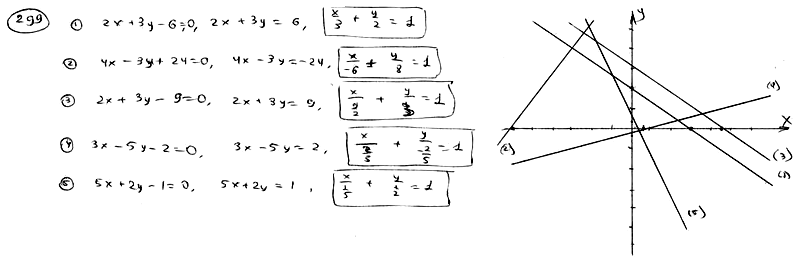 299
① 2x + 3y - 6 = 0, 2x + 3y = 6, x/3 + y/2 = 1
② 4x - 3y + 24 = 0, 4x - 3y = -24, x/-6 + y/8 = 1
③ 2x + 3y - 9 = 0, 2x + 3y = 9, x/(9/2) + y/3 = 1
④ 3x - 5y - 2 = 0, 3x - 5y = 2, x/(3/5) + y/(-2/5) = 1
⑤ 5x + 2y - 1 = 0, 5x + 2y = 1, x/(1/5) + y/(1/2) = 1
y
(4)
x
(2)
(3)
(1)
(5)